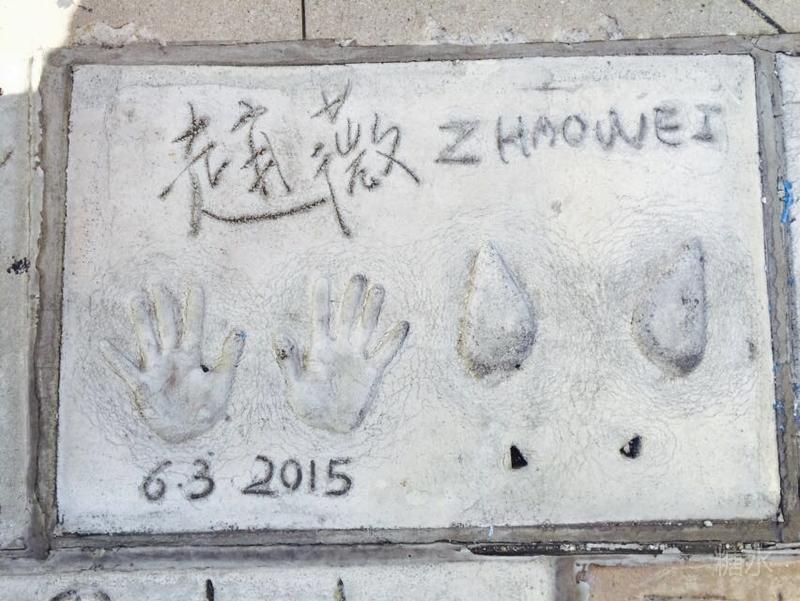 趙薇 ZHAOWEI
6.3 2015
糖水